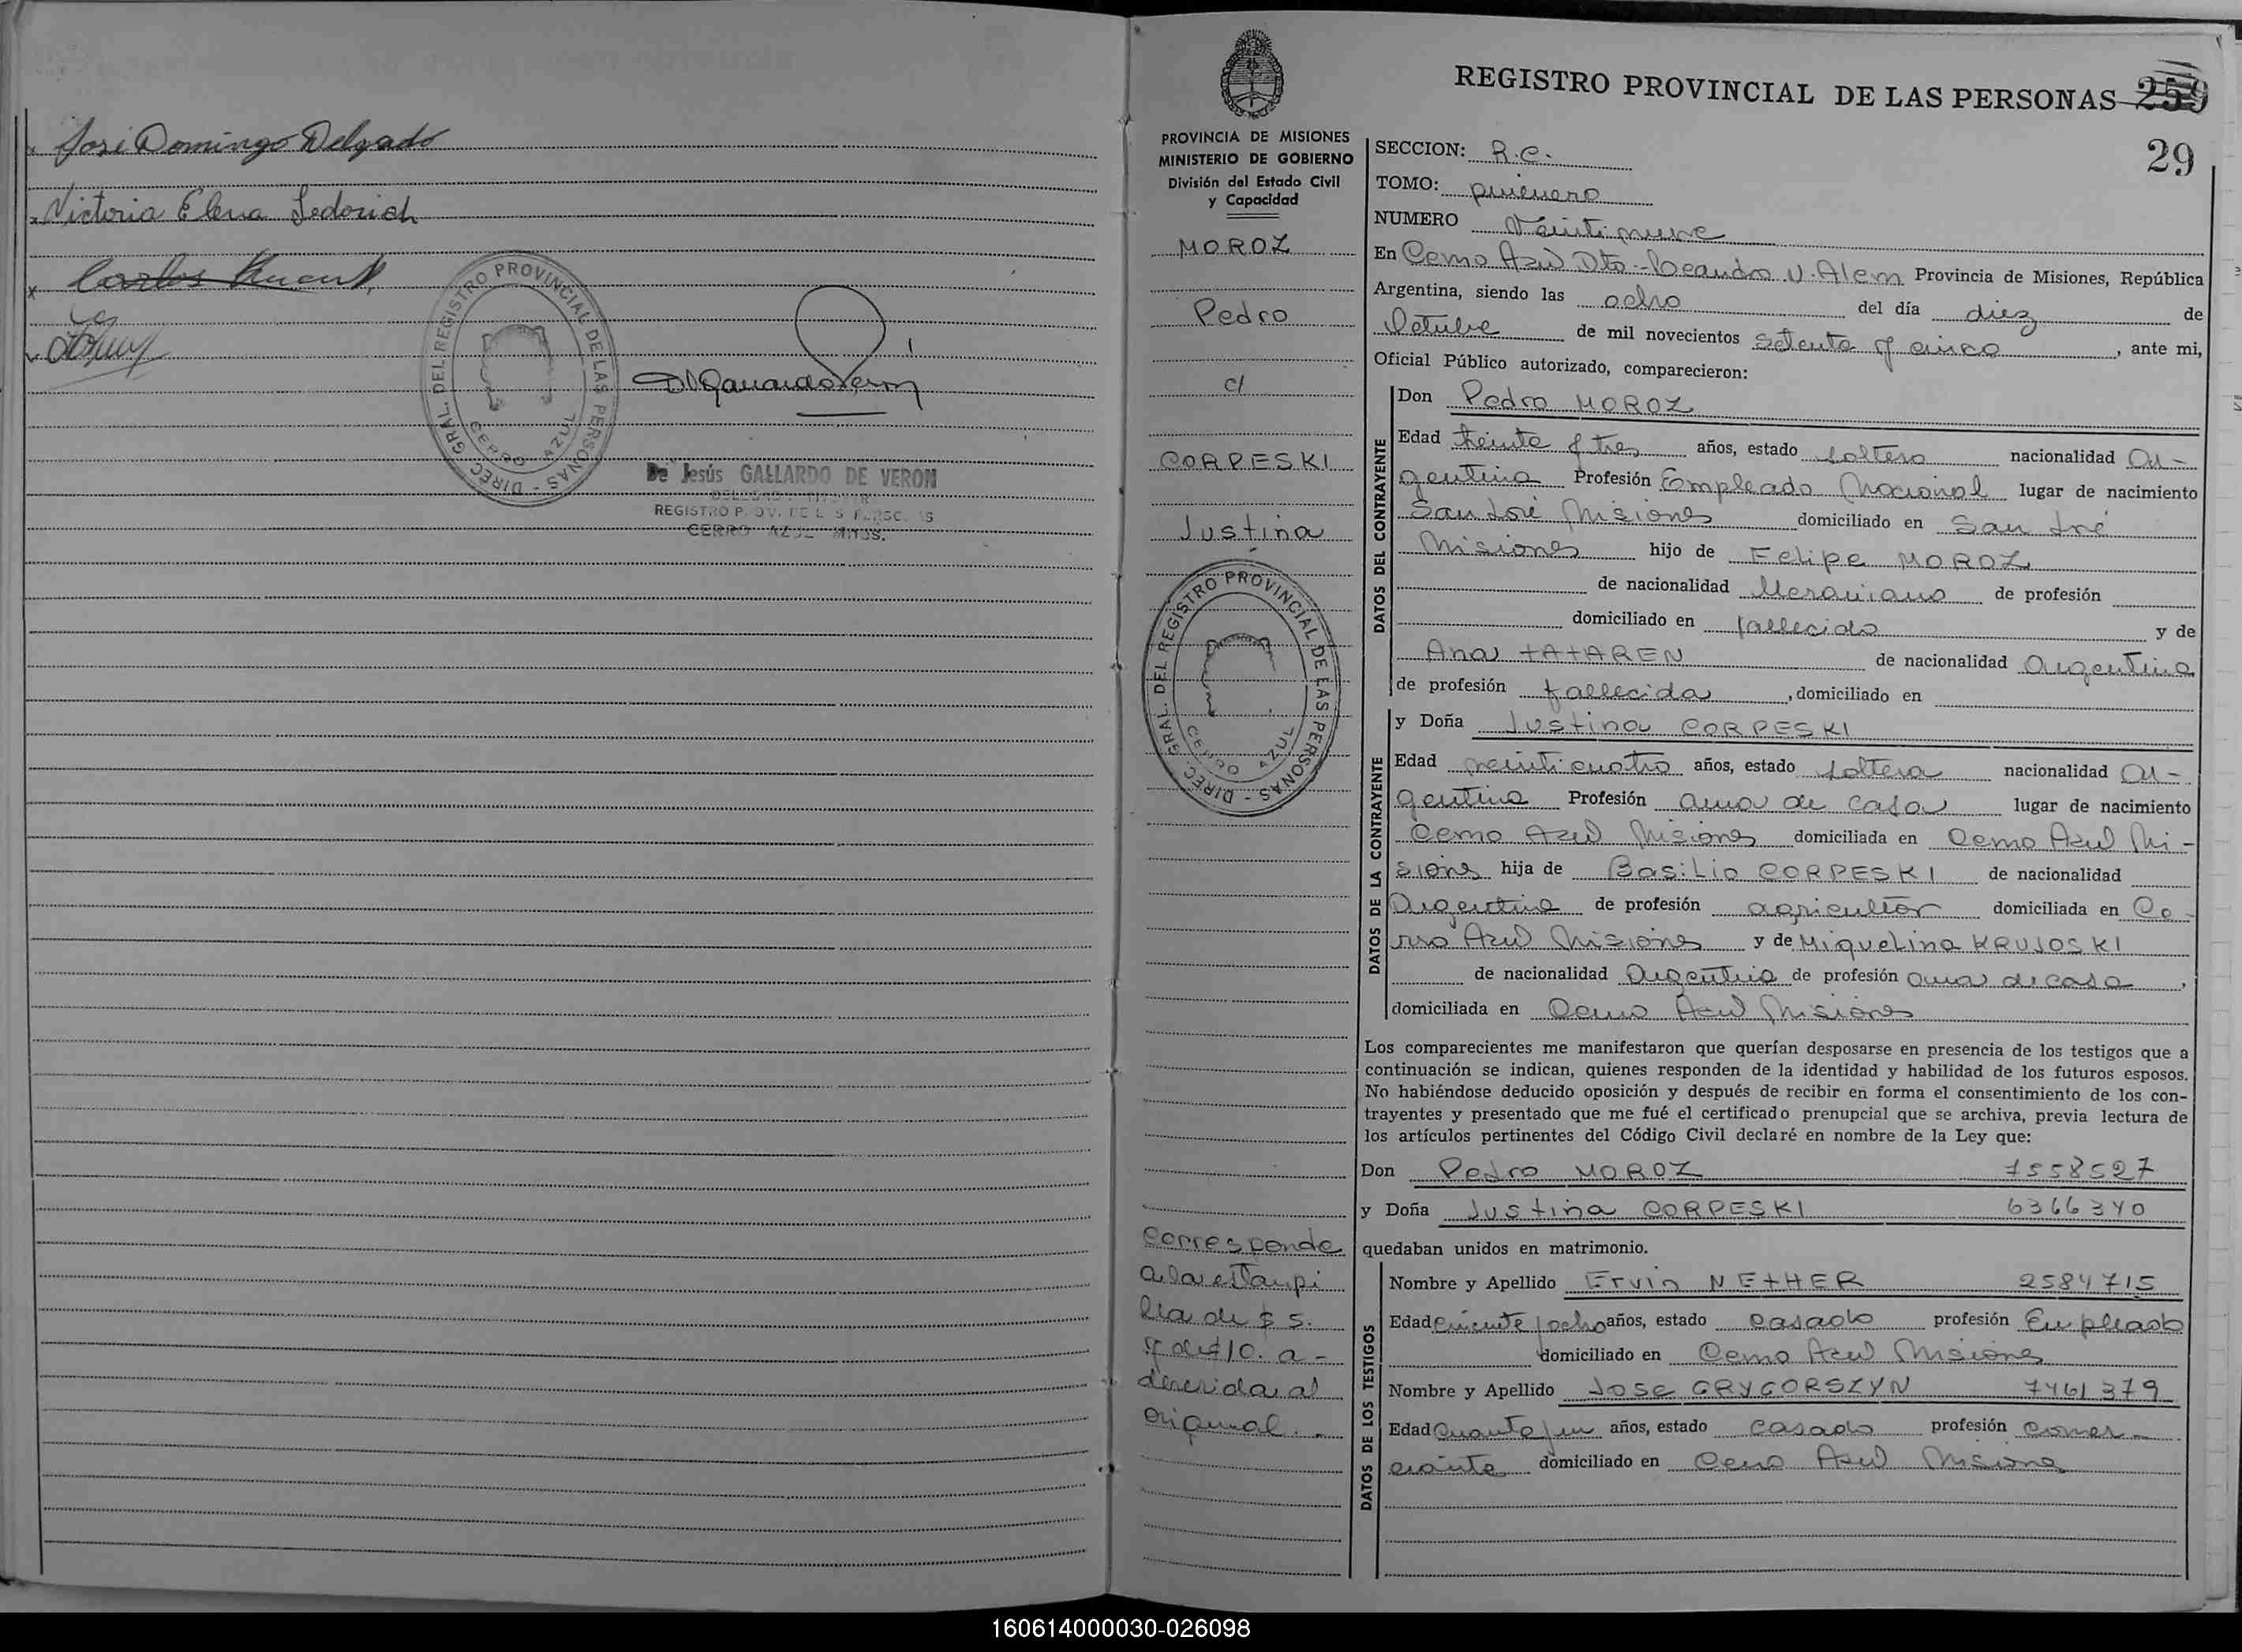 José Domingo Delgado
Victoria Elena Sedorich
Carlos
DIREC. GRAL. DEL REGISTRO PROVINCIAL DE LAS PERSONAS -
CERRO AZUL
De Jesús GALLARDO DE VERON
REGISTRO PROV. DE LAS PERSONAS
CERRO AZUL MNES.
PROVINCIA DE MISIONES
MINISTERIO DE GOBIERNO
División del Estado Civil
y Capacidad
MOROZ
Pedro
c/
CORPESKI
Justina
DIREC. GRAL. DEL REGISTRO PROVINCIAL DE LAS PERSONAS -
CERRO AZUL
Corresponde
a la estampi
lla de $ 5.
y de $ 10. a-
dherida al
original. -
REGISTRO PROVINCIAL DE LAS PERSONAS 259
29
SECCION: R.C.
TOMO: primero
NUMERO Veintinueve
En Cerro Azul Dto - Leandro N. Alem Provincia de Misiones, República
Argentina, siendo las ocho del día diez de
Octubre de mil novecientos setenta y cinco, ante mi,
Oficial Público autorizado, comparecieron:
DATOS DEL CONTRAYENTE
Don Pedro MOROZ
Edad treinta y tres años, estado soltero nacionalidad Ar-
gentina Profesión Empleado Nacional lugar de nacimiento
San José Misiones domiciliado en San José
Misiones hijo de Felipe MOROZ
de nacionalidad Ucraniano de profesión
domiciliado en fallecido y de
Ana TATAREN de nacionalidad Argentina
de profesión fallecida, domiciliado en
DATOS DE LA CONTRAYENTE
y Doña Justina CORPESKI
Edad veinticuatro años, estado soltera nacionalidad Ar-
gentina Profesión ama de casa lugar de nacimiento
Cerro Azul Misiones domiciliada en Cerro Azul Mi-
siones hija de Basilio CORPESKI de nacionalidad
Argentina de profesión agricultor domiciliada en Ce-
rro Azul Misiones y de Miguelina KRUJOSKI
de nacionalidad Argentina de profesión ama de casa,
domiciliada en Cerro Azul Misiones
Los comparecientes me manifestaron que querían desposarse en presencia de los testigos que a
continuación se indican, quienes responden de la identidad y habilidad de los futuros esposos.
No habiéndose deducido oposición y después de recibir en forma el consentimiento de los con-
trayentes y presentado que me fué el certificado prenupcial que se archiva, previa lectura de
los artículos pertinentes del Código Civil declaré en nombre de la Ley que:
Don Pedro MOROZ 7558527
y Doña Justina CORPESKI 6366340
quedaban unidos en matrimonio.
DATOS DE LOS TESTIGOS
Nombre y Apellido Ervin NETHER 2584715
Edad cincuenta y ocho años, estado casado profesión Empleado
domiciliado en Cerro Azul Misiones
Nombre y Apellido Jose GRYGORSZYN 7461379
Edad cuarenta y un años, estado casado profesión comer-
ciante domiciliado en Cerro Azul Misiones
160614000030-026098